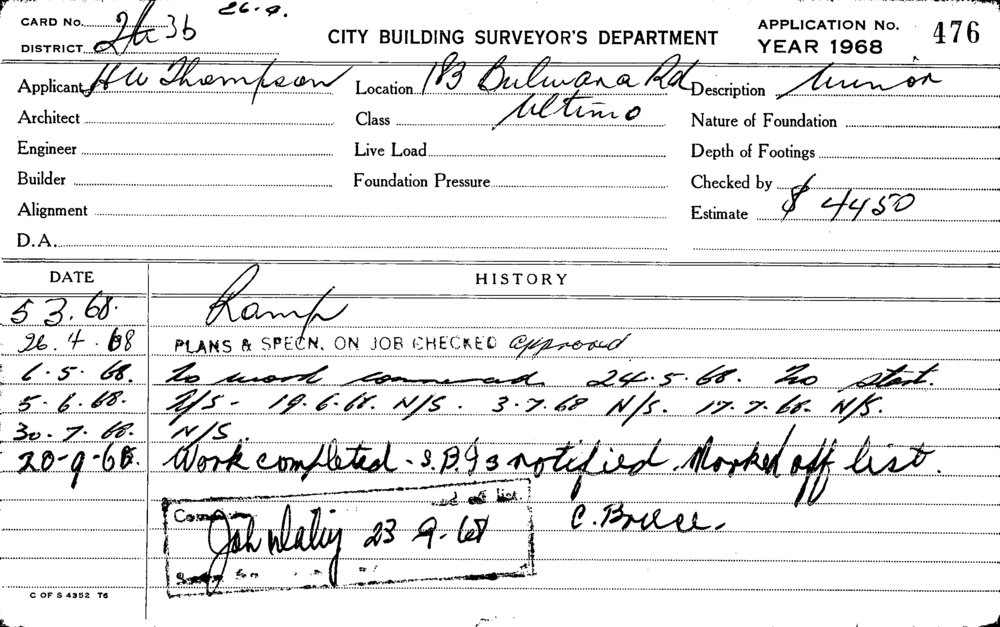 26.9.
CARD No. 36
DISTRICT
CITY BUILDING SURVEYOR'S DEPARTMENT
APPLICATION No. 476
YEAR 1968
Applicant H W Thompson
Location 183 Bulwara Rd
Ultimo
Description Minor
Architect
Class
Nature of Foundation
Engineer
Live Load
Depth of Footings
Builder
Foundation Pressure
Checked by
Alignment
Estimate $ 4450
D.A.
DATE HISTORY
5 3. 68. Ramp
26. 4. 68 PLANS & SPECN. ON JOB CHECKED approved
6. 5. 68. No work commenced. 24. 5. 68. No start.
5. 6. 68. N/S - 19. 6. 68. N/S. 3. 7. 68 N/S. 17. 7. 68. N/S.
30. 7. 68. N/S.
20-9-68. Work completed - S.B.I's notified. Marked off list.
C. Breese.
off list
23 9-68
C OF S 4352 T6